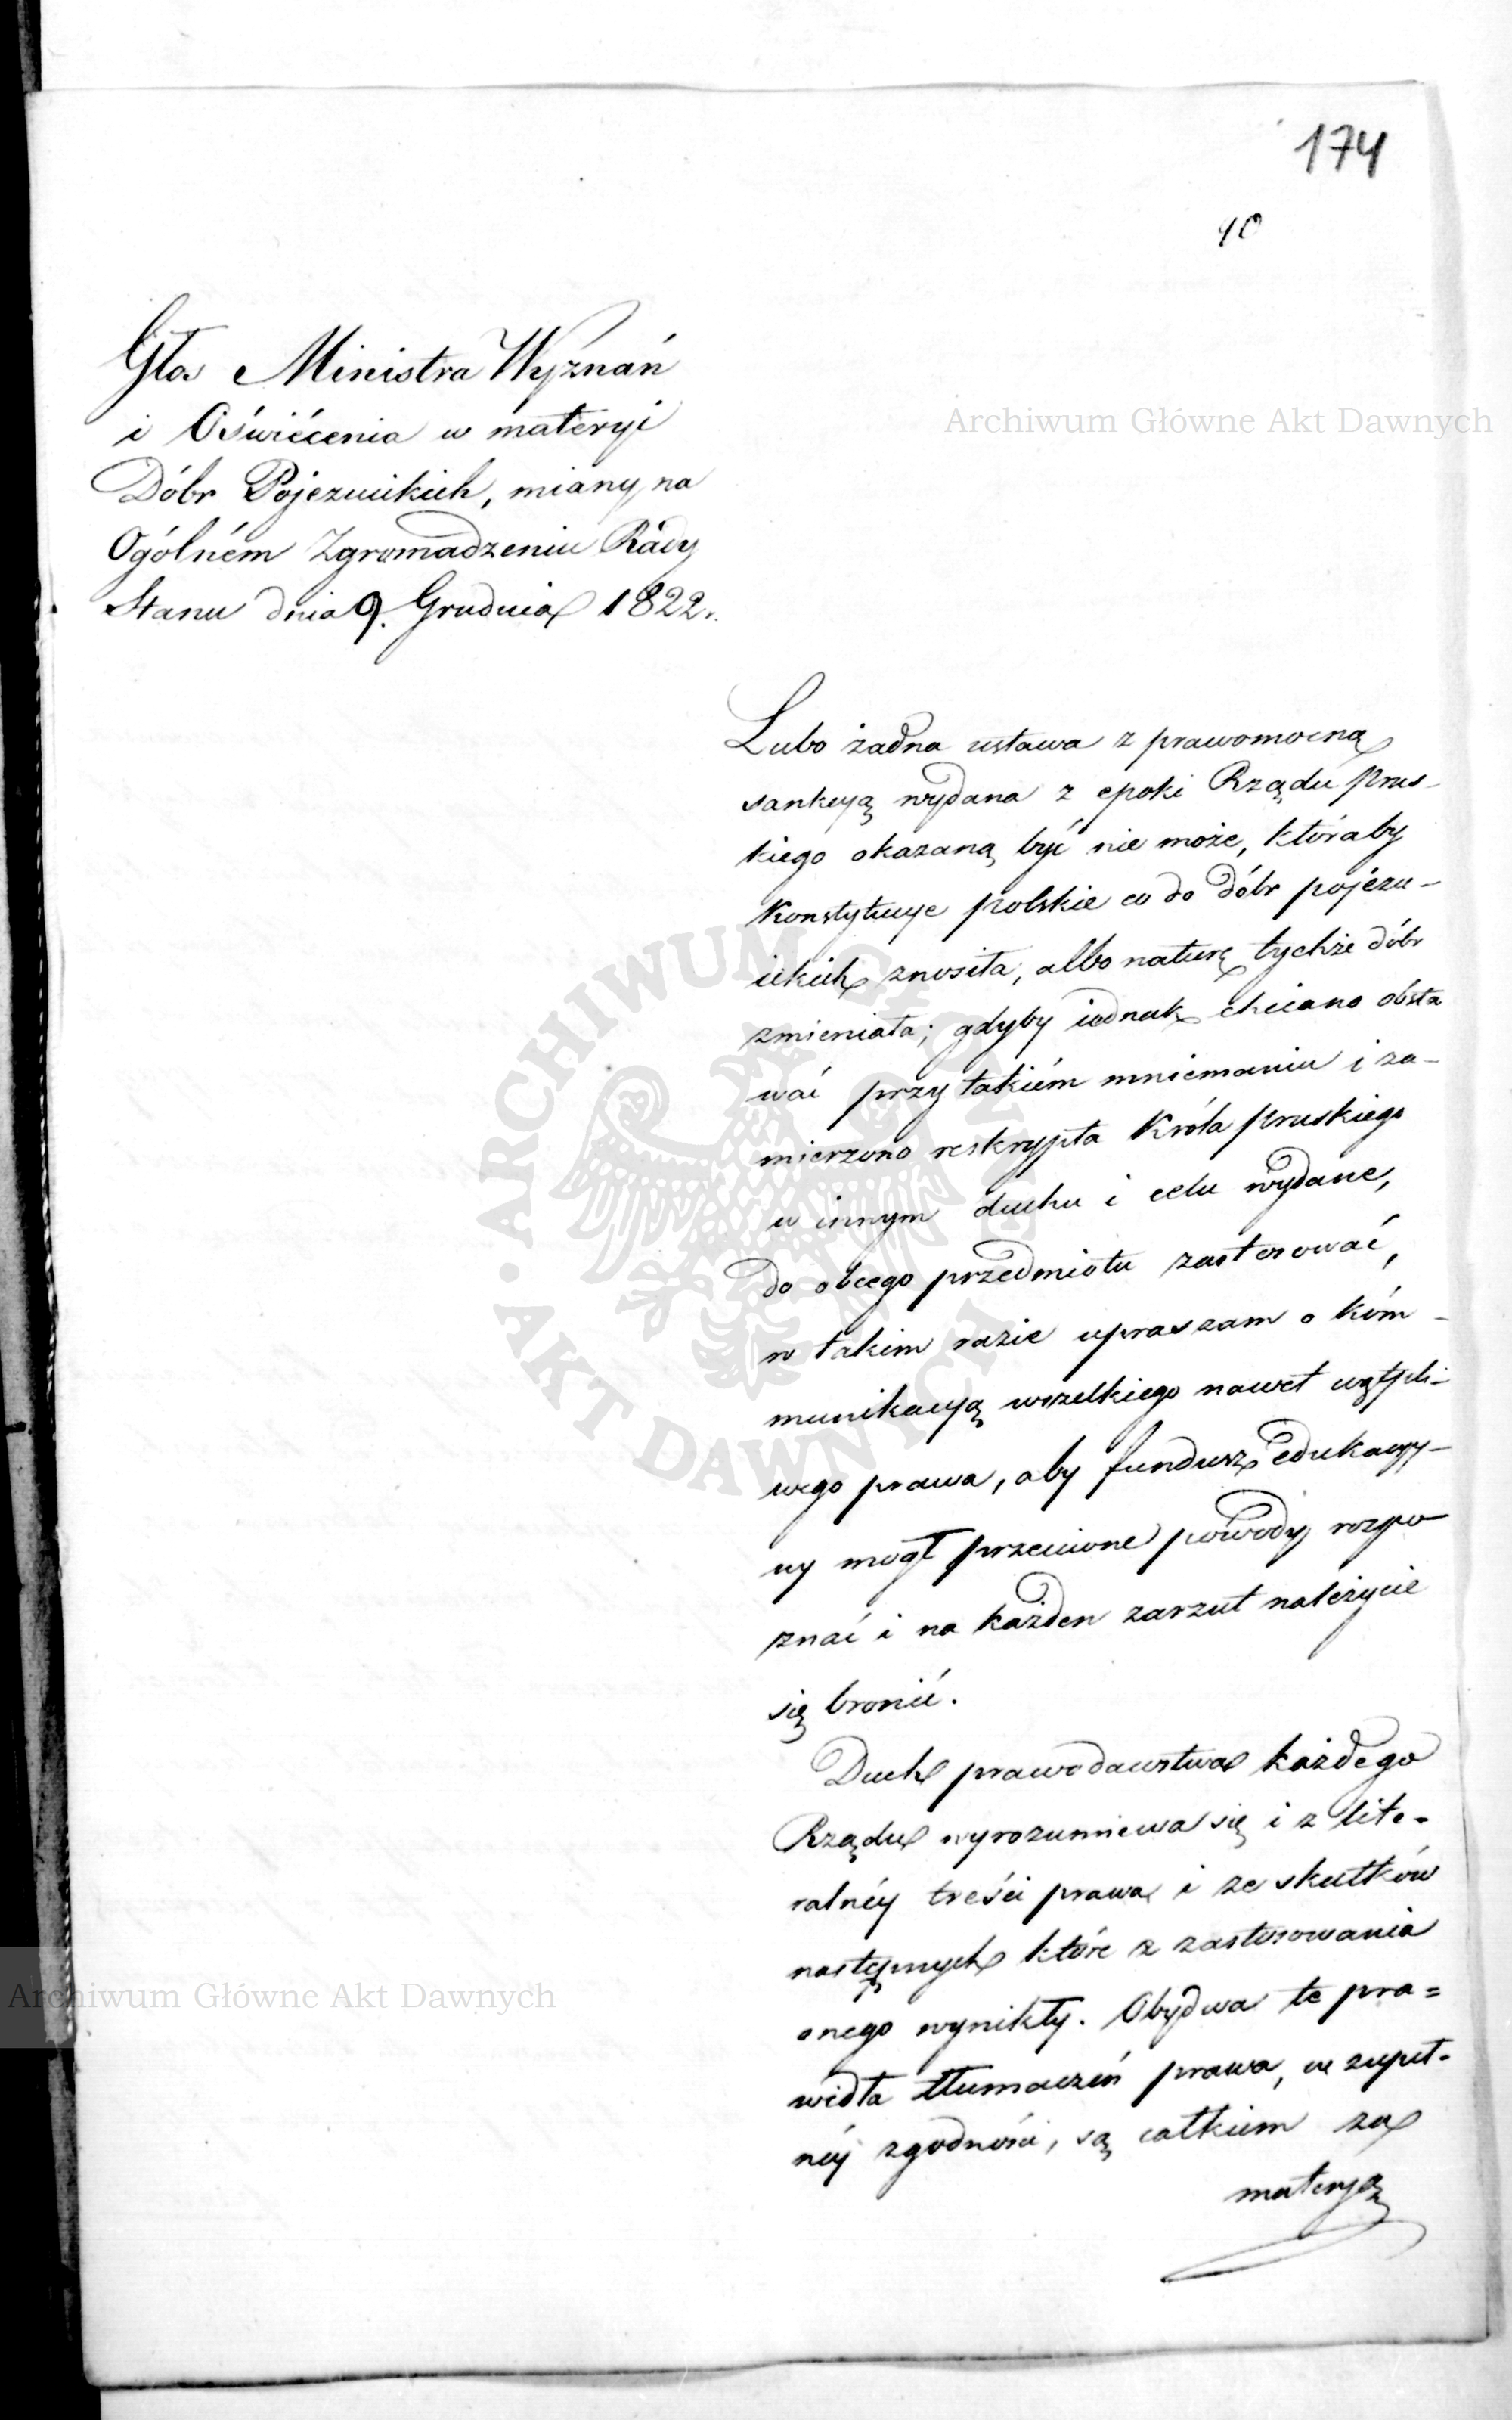 174
40
Głos Ministra Wyznań
i Oświécenia w materyi
Dóbr Pojezuickich, miany na
Ogólném Zgromadzeniu Rady
Stanu dnia 9. Grudnia 1822 r.
Archiwum Główne Akt Dawnych
Lubo żadna ustawa z prawomocną
sankcyą wydana z epoki Rządu Prus-
kiego okazaną być nie może, któraby
Konstytucye polskie co do dóbr pojezu-
ickich znosiła, albo naturę tychże dóbr
zmieniała; gdyby iednak chciano obsta
wać przy takiém mniemaniu i za-
mierzono reskrypta Króla pruskiego
w innym duchu i celu wydane,
do obcego przedmiotu zastosować,
w takim razie upraszam o kóm-
munikacyą wszelkiego nawet wątpli-
wego prawa, aby fundusz edukacyy-
ny mógł przeciwne powody rozpo
znać i na każden zarzut należycie
się bronić.
Duch prawodawstwa każdego
Rządu wyrozumiewa się i z lite-
ralnéy treści prawa i ze skutków
następnych które z zastosowania
onego wynikły. Obydwa te pra=
widła tłumaczeń prawa, w zupeł-
néy zgodności, są całkiem za
materyą
ARCHIWUM GŁÓWNE • AKT DAWNYCH
Archiwum Główne Akt Dawnych